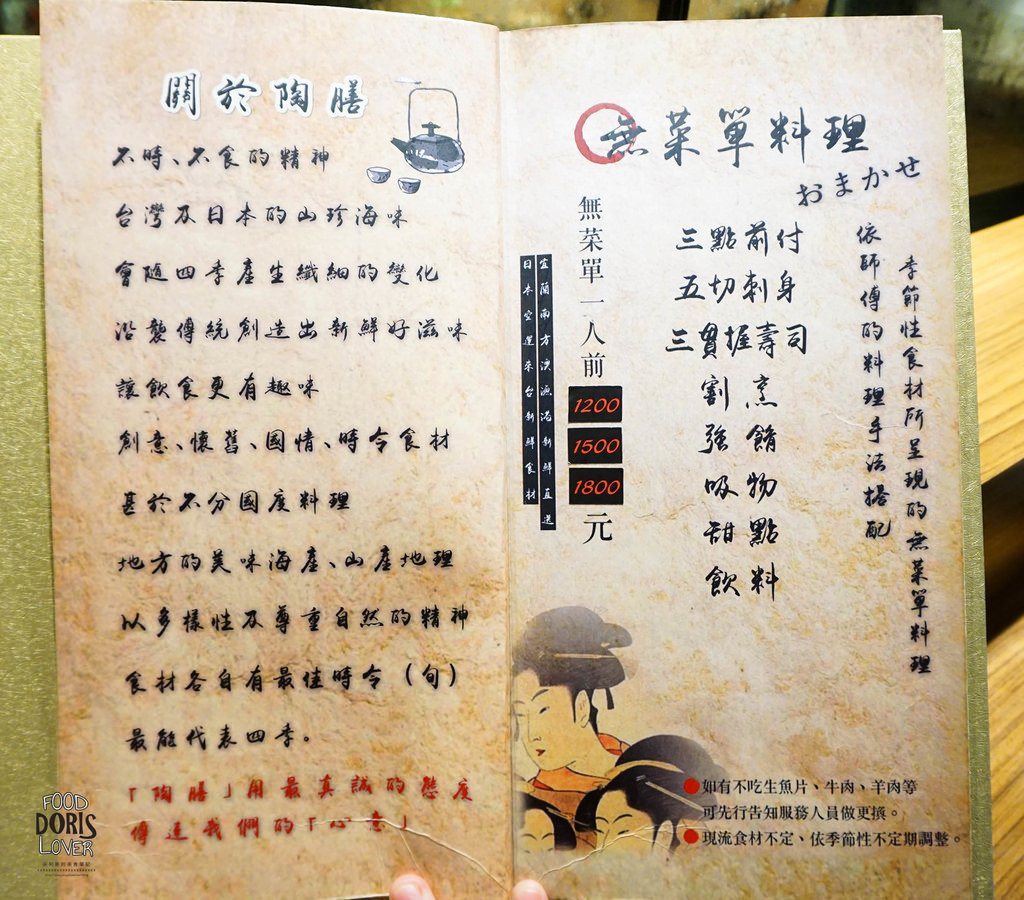 關於陶膳
不時、不食的精神
台灣及日本的山珍海味
會隨四季產生纖細的變化
沿襲傳統創造出新鮮好滋味
讓飲食更有趣味
創意、懷舊、國情、時令食材
甚於不分國度料理
地方的美味海產、山產地理
以多樣性及尊重自然的精神
食材各自有最佳時令（旬）
最能代表四季。
「陶膳」用最真誠的態度
傳達我們的「心意」
無菜單料理
おまかせ
季節性食材所呈現的無菜單料理
依師傅的料理手法搭配
三點前付
五切刺身
三貫握壽司
割烹
強餚
吸物
甜點
飲料
無菜單一人前
1200
1500
1800
元
宜蘭南方澳漁港新鮮直送
日本空運來台新鮮食材
如有不吃生魚片、牛肉、羊肉等
可先行告知服務人員做更換。
現流食材不定、依季節性不定期調整。
FOOD
DORIS
LOVER